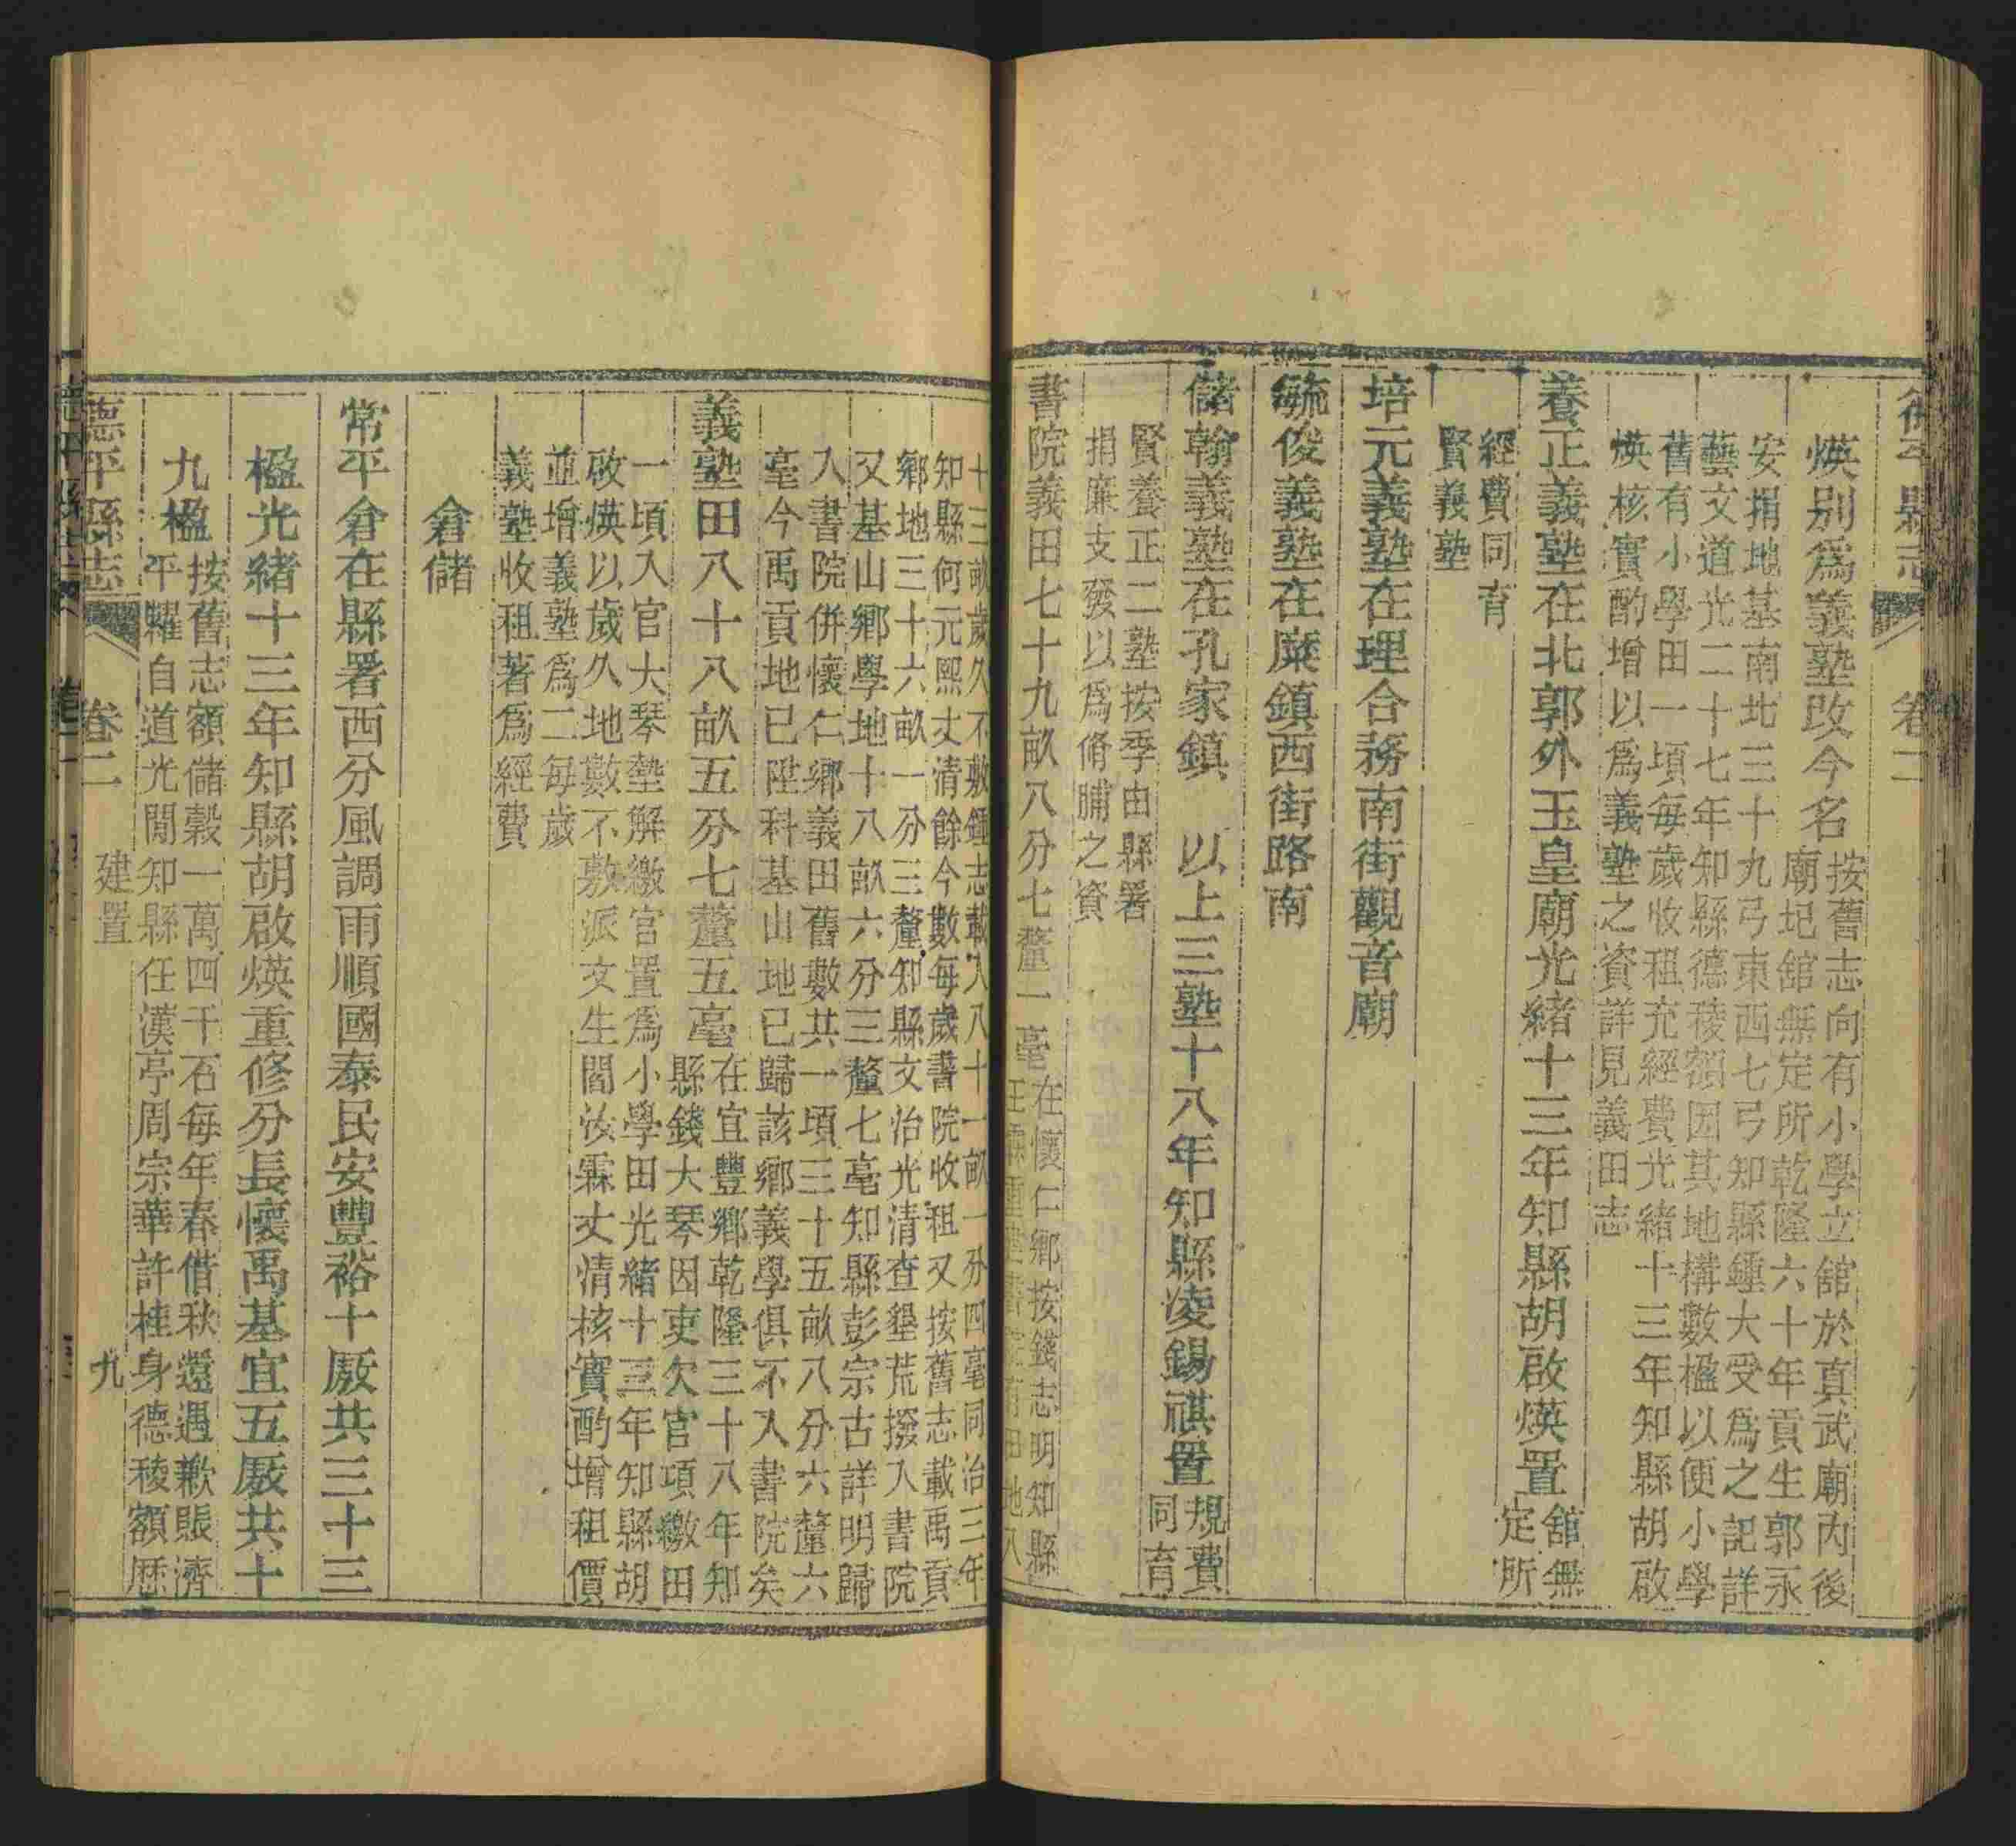 德平縣志 卷二
煐别爲義塾改今名
按舊志向有小學立舘於真武廟内後
廟圮舘無定所乾隆六十年貢生郭永
安捐地基南北三十九弓東西七弓知縣鍾大受爲之記詳
藝文道光二十七年知縣德稜額因其地構數楹以便小學
舊有小學田一頃每歲收租充經費光緒十三年知縣胡啟
煐核實酌增以爲義塾之資詳見義田志
養正義塾在北郭外玉皇廟光緒十三年知縣胡啟煐置
舘無
定所
經費同育
賢義塾
培元義塾在理合務南街觀音廟
毓俊義塾在糜鎮西街路南
儲翰義塾在孔家鎮 以上三塾十八年知縣凌錫祺置
規費
同育
賢養正二塾按季由縣署
捐廉支發以爲脩脯之資
書院義田七十九畝八分七釐一毫
在懷仁鄉按錢志明知縣
田地入
十三畝歲久不敷鍾志載入八十一畝一分四毫同治三年
知縣何元熙丈清餘今數每歲書院收租又按舊志載禹貢
鄉地三十六畝一分三釐知縣文治光清查墾荒撥入書院
又基山鄉學地十八畝六分三釐七毫知縣彭宗古詳明歸
入書院併懷仁鄉義田舊數共一頃三十五畝八分六釐六
毫今禹貢地已陞科基山地已歸該鄉義學俱不入書院矣
義塾田八十八畝五分七釐五毫
在宜豐鄉乾隆三十八年知
縣錢大琴因吏欠官項繳田
一頃入官大琴墊解繳官置爲小學田光緒十三年知縣胡
啟煐以歲久地數不敷派文生閻汝霖丈清核實酌增租價
並增義塾爲二每歲
義塾收租著爲經費
倉儲
常平倉在縣署西分風調雨順國泰民安豐裕十厫共三十三
楹光緒十三年知縣胡啟煐重修分長懷禹基宜五厫共十
九楹
按舊志額儲穀一萬四千石每年春借秋還遇歉賑濟
平糶自道光閒知縣任漢亭周宗華許桂身德稜額歷
德平縣志 卷二 建置 九